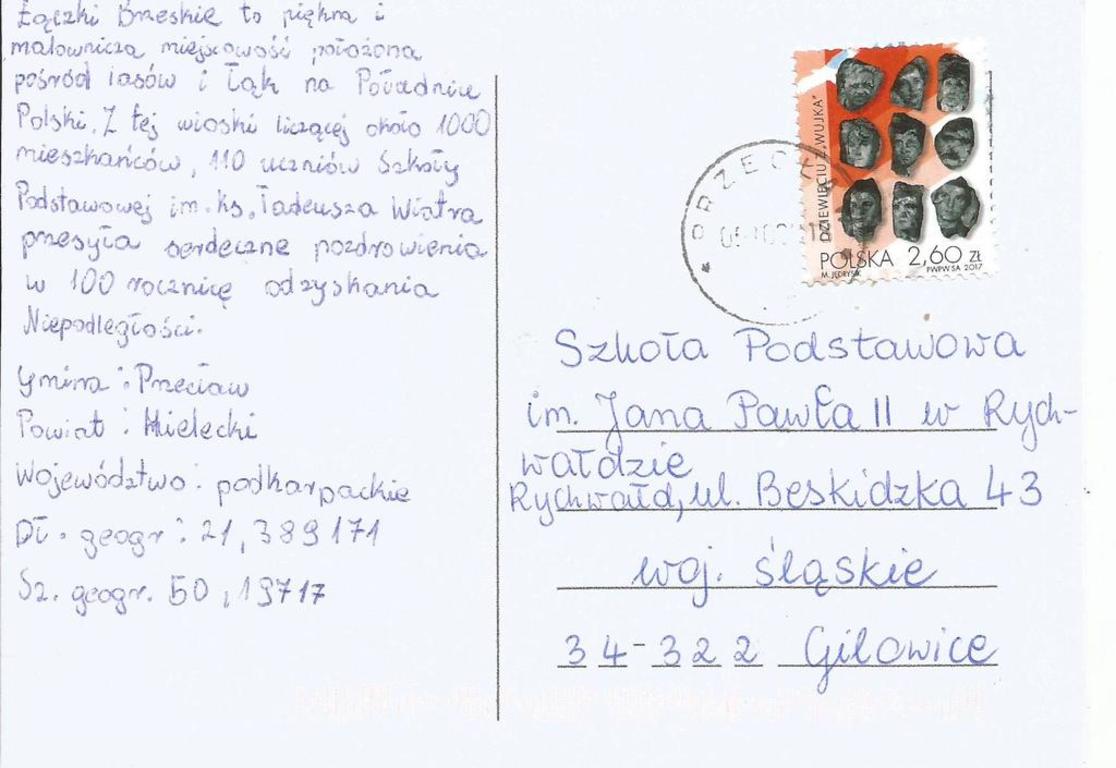 Łączki Brzeskie to piękna i
malownicza miejscowość położona
pośród lasów i łąk na Południu
Polski. Z tej wioski liczącej około 1000
mieszkańców, 110 uczniów Szkoły
Podstawowej im. ks. Tadeusza Wiatra
przesyła serdeczne pozdrowienia
w 100 rocznicę odzyskania
Niepodległości.
gmina: Przecław
Powiat: Mielecki
Województwo: podkarpackie
Dł. geogr: 21,389171
Sz. geogr. 50,19717
DZIEWIĘCIU Z „WUJKA”
POLSKA 2,60 ZŁ
M. JĘDRYSIK PWPW SA 2017
Szkoła Podstawowa
im. Jana Pawła II w Rych-
wałdzie
Rychwałd, ul. Beskidzka 43
woj. śląskie
34-322 Gilowice